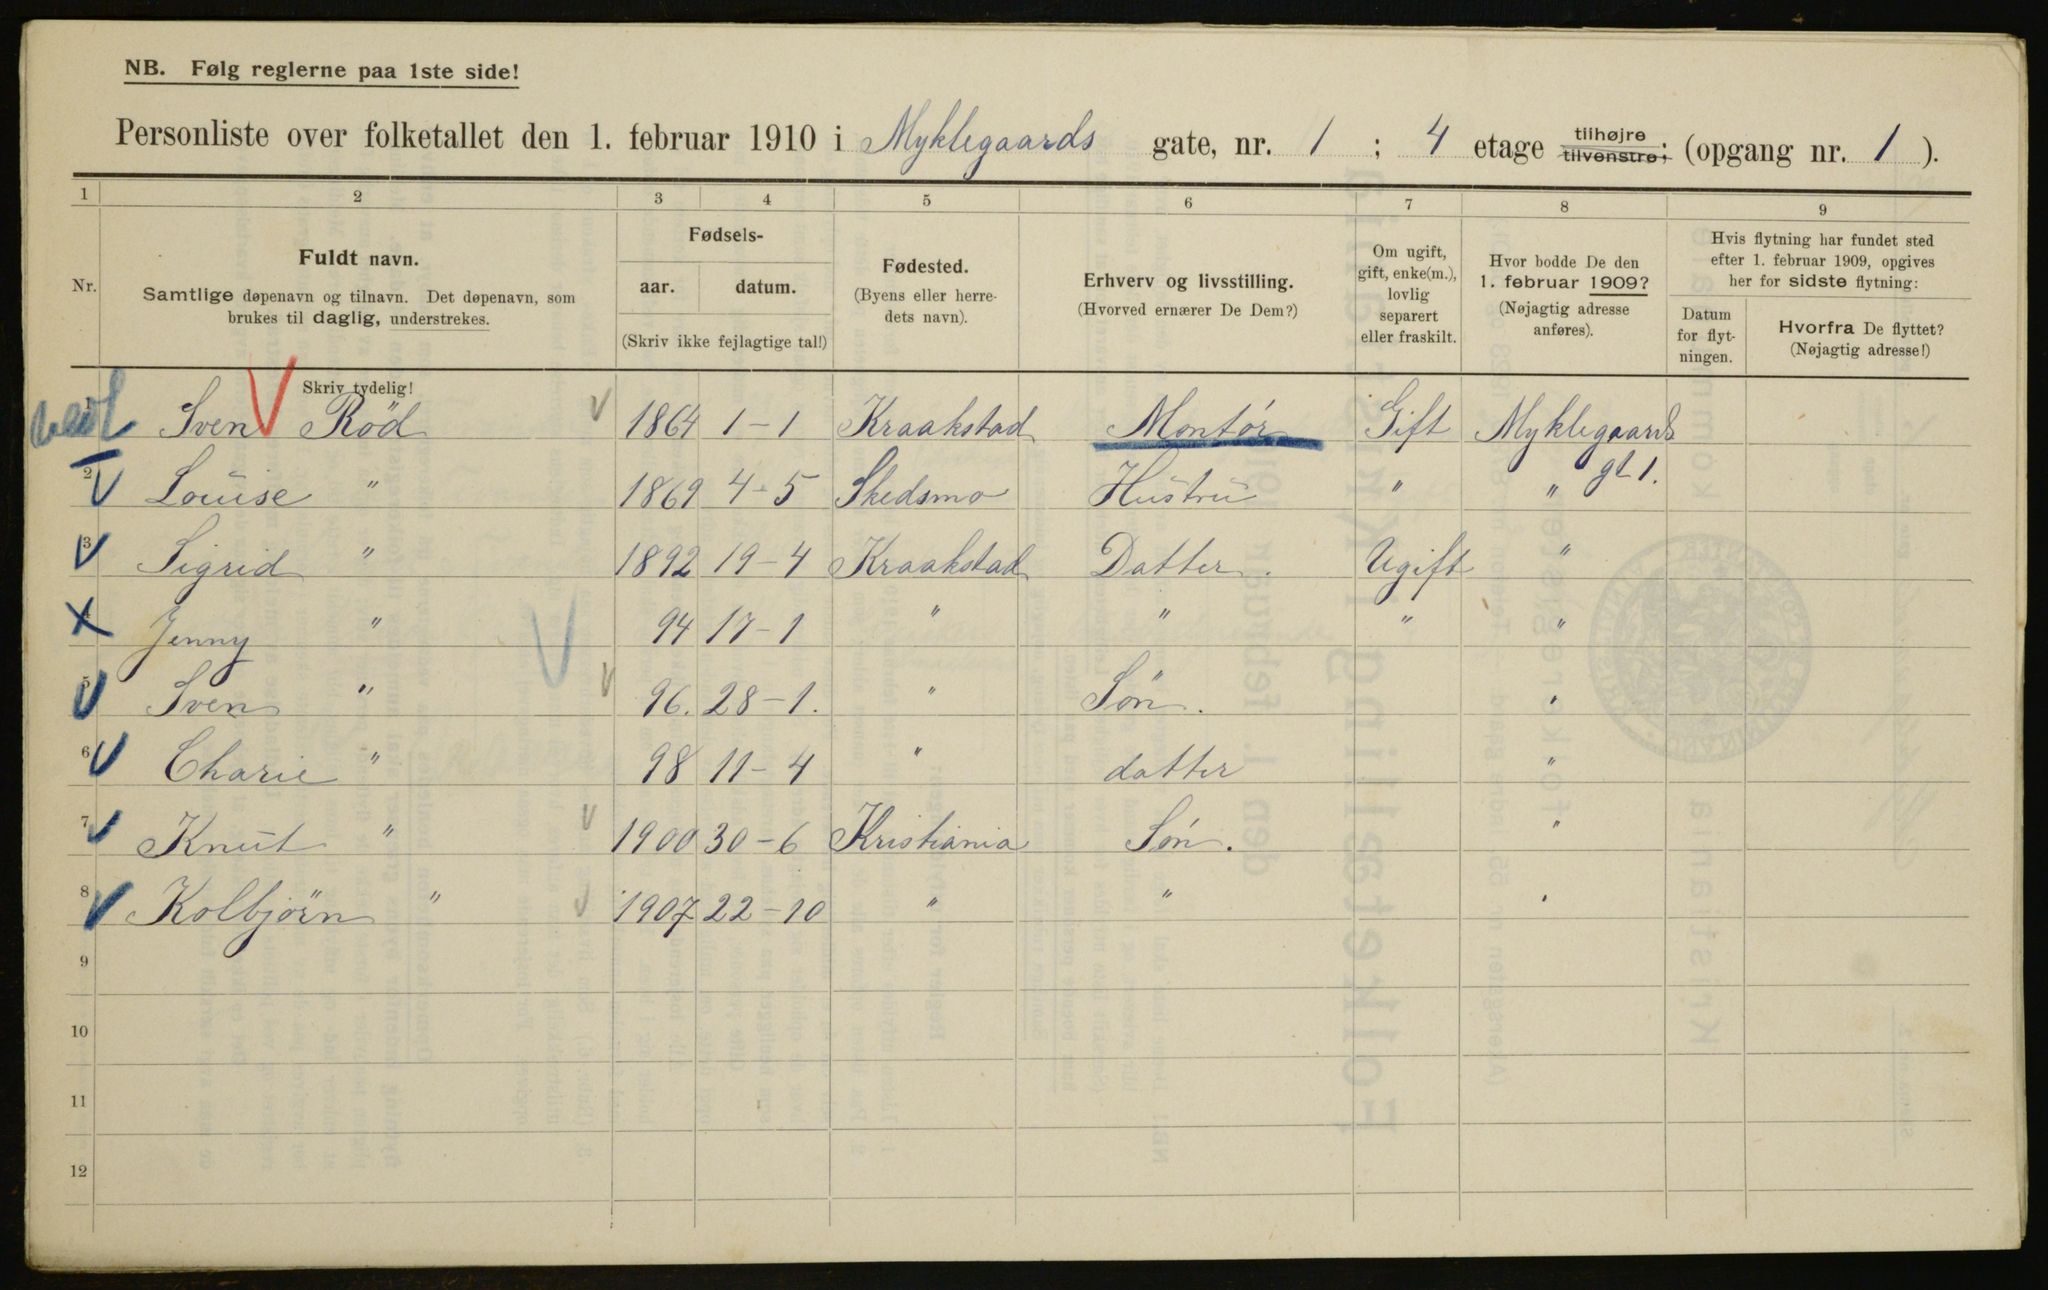 NB. Følg reglerne paa 1ste side!
Personliste over folketallet den 1. februar 1910 i Myklegaards gate, nr. 1 ; 4 etage tilhøjre tilvenstre; (opgang nr. 1 ).
1 2 3 4 5 6 7 8 9
Nr.
Fuldt navn.
Samtlige døpenavn og tilnavn. Det døpenavn, som
brukes til daglig, understrekes.
Fødsels-
aar. datum.
(Skriv ikke fejlagtige tal!)
Fødested.
(Byens eller herre-
dets navn).
Erhverv og livsstilling.
(Hvorved ernærer De Dem?)
Om ugift,
gift, enke(m.),
lovlig
separert
eller fraskilt.
Hvor bodde De den
1. februar 1909?
(Nøjagtig adresse
anføres).
Hvis flytning har fundet sted
efter 1. februar 1909, opgives
her for sidste flytning:
Datum
for flyt-
ningen.
Hvorfra De flyttet?
(Nøjagtig adresse!)
Skriv tydelig!
1 Sven Röd 1864 1-1 Kraakstad Montör Gift Myklegaards
gt 1.
2 Louise " 1869 4-5 Skedsmo Hustru " "
3 Sigrid " 1892 19-4 Kraakstad Datter. Ugift "
4 Jenny " 94 17-1 " " " "
5 Sven " 96. 28-1. " Sön. "
6 Charie " 98 11-4 " datter "
7 Knut " 1900 30-6 Kristiania Sön. "
8 Kolbjörn " 1907 22-10 " " "
9
10
11
12